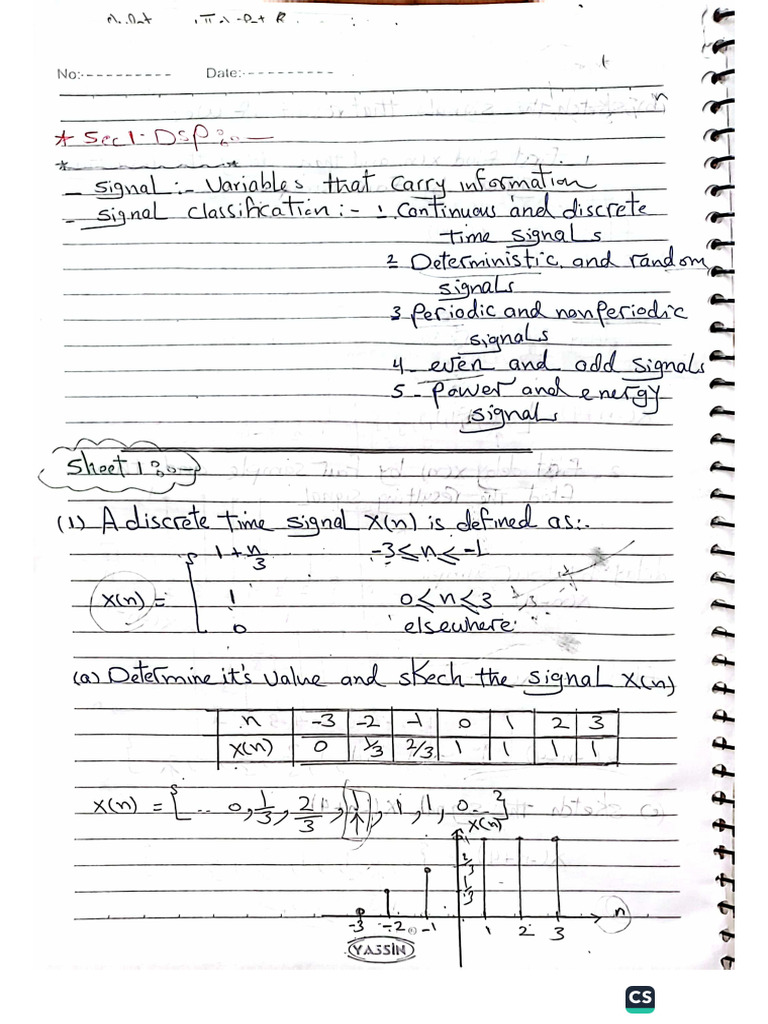 No:---------- Date:----------
* Sec1-DSP:-
- Signal :- Variables that Carry information
- Signal classification :- 1. Continuous and discrete
time signals
2- Deterministic and random
signals
3- Periodic and nonperiodic
signals
4- even and odd signals
5- Power and energy
signals
Sheet 1:-
(1) A discrete time signal X(n) is defined as:-
1 + n/3 -3 ≤ n ≤ -1
X(n) = { 1 0 ≤ n ≤ 3
0 elsewhere
(a) Determine it's value and skech the signal X(n)
n -3 -2 -1 0 1 2 3
X(n) 0 1/3 2/3 1 1 1 1
X(n) = { ... 0, 1/3, 2/3, 1, 1, 1, 0 .. }
↑
X(n)
1
2/3
1/3
n
-3 -2 -1 1 2 3
YASSIN
CS